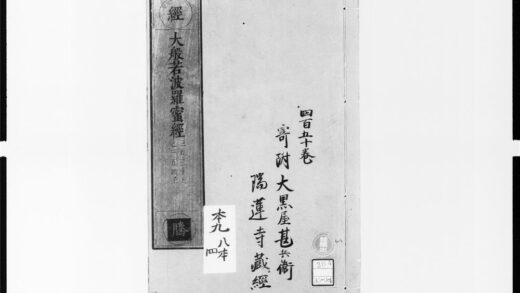 經
大般若波羅蜜經
勝
四百五十卷
寄附大黒屋甚兵衛
陽蓮寺藏經
本九
八本
四